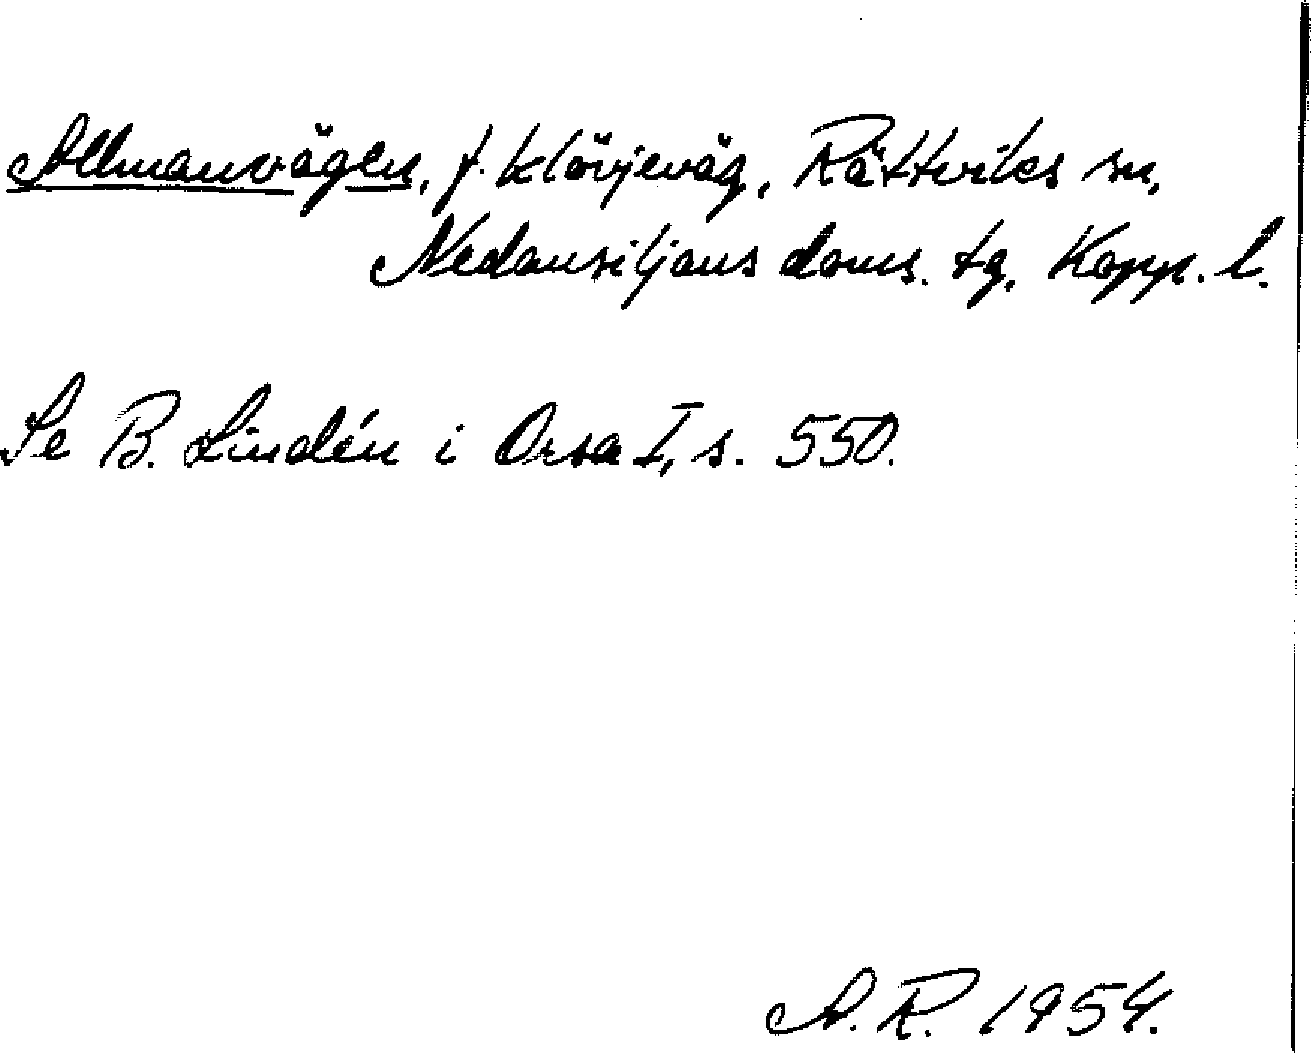 Allmanvägen, f. klövjeväg, Rättviks sn,
Nedansiljans doms. tg, Kopp. l.
Se B. Lindén i Orsa I, s. 550.
A. R. 1954.